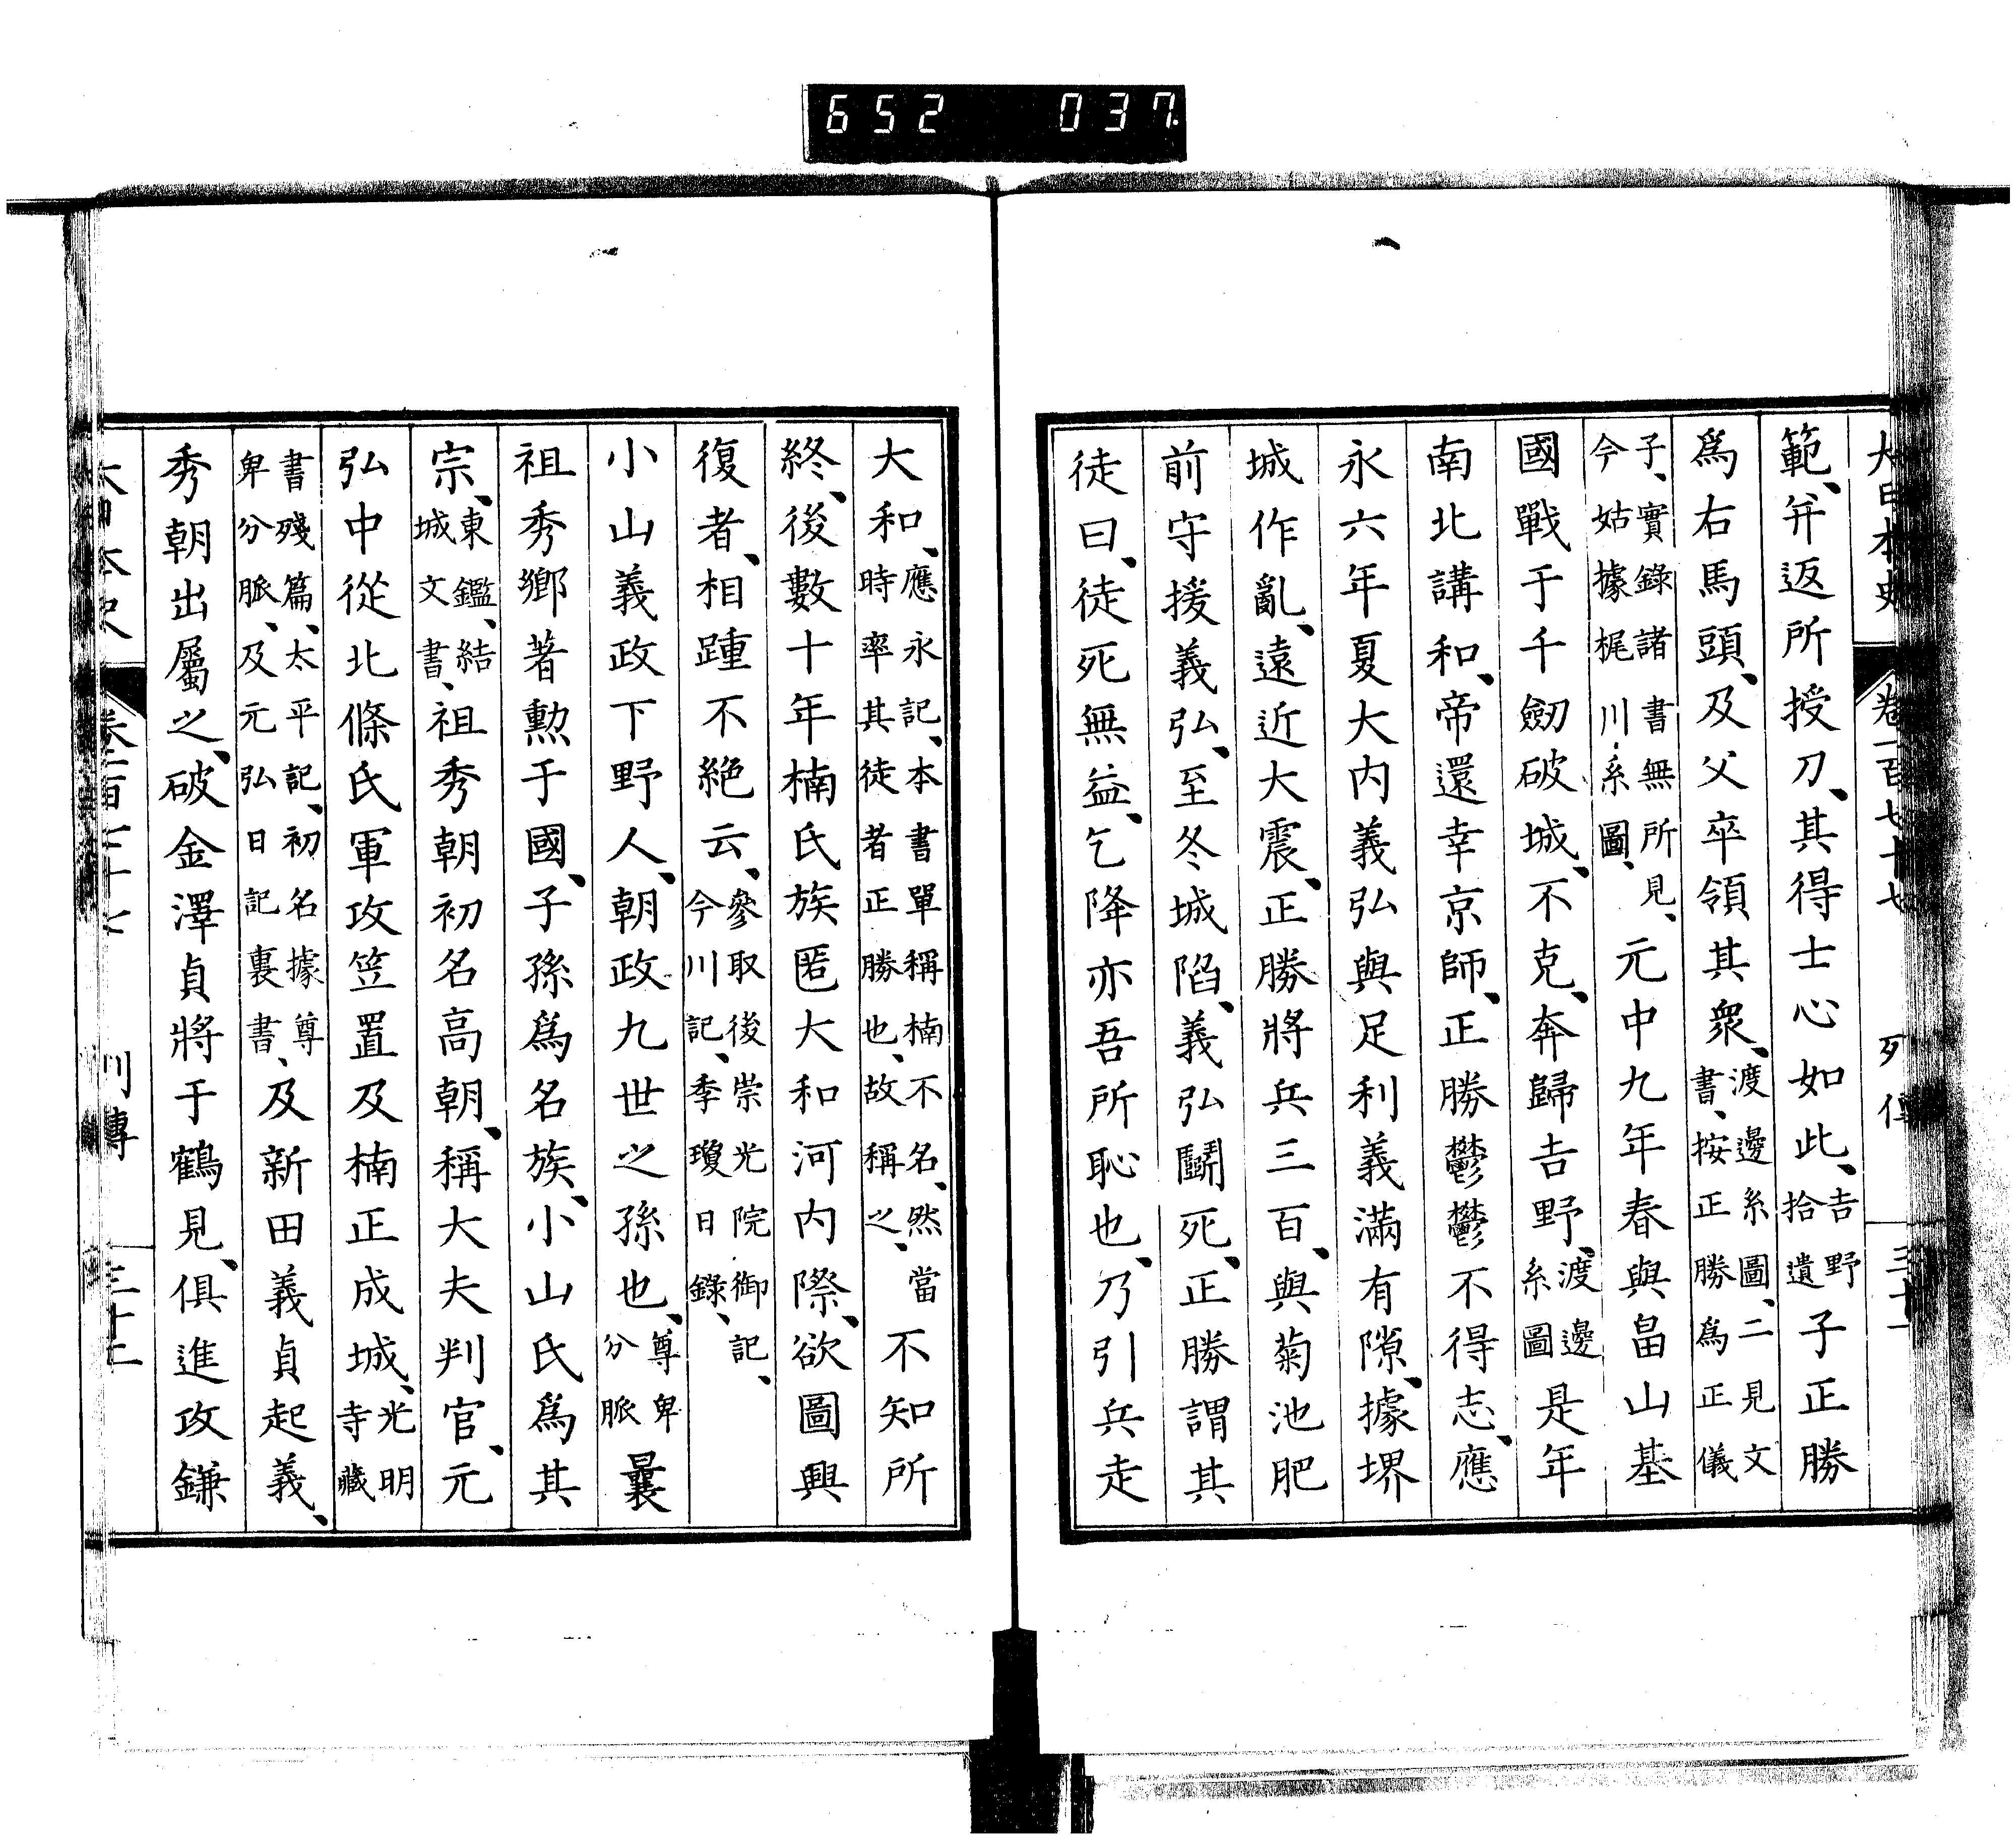 652 037
大日本史 卷一百七十七 列傳 三十一
範、幷返所授刀、其得士心如此、吉野拾遺子正勝
爲右馬頭、及父卒領其衆、渡邊系圖、二見文書、按正勝爲正儀
子、實錄諸書無所見、今姑據梶川系圖、元中九年春與畠山基
國戰于千劒破城、不克、奔歸吉野、渡邊系圖是年
南北講和、帝還幸京師、正勝鬱鬱不得志、應
永六年夏大内義弘與足利義滿有隙、據堺
城作亂、遠近大震、正勝將兵三百、與菊池肥
前守援義弘、至冬城陷、義弘鬭死、正勝謂其
徒曰、徒死無益、乞降亦吾所恥也、乃引兵走
大和、應永記、本書單稱楠不名、然當時率其徒者正勝也、故稱之、不知所
終、後數十年楠氏族匿大和河内際、欲圖興
復者、相踵不絶云、參取後崇光院御記、今川記、季瓊日錄、
小山義政下野人、朝政九世之孫也、尊卑分脈曩
祖秀鄕著勲于國、子孫爲名族、小山氏爲其
宗、東鑑、結城文書、祖秀朝初名高朝、稱大夫判官、元
弘中從北條氏軍攻笠置及楠正成城、光明寺藏
書殘篇、太平記、初名據尊卑分脈、及元弘日記裏書、及新田義貞起義、
秀朝出屬之、破金澤貞將于鶴見、俱進攻鎌
大日本史 卷一百七十七 列傳 三十二